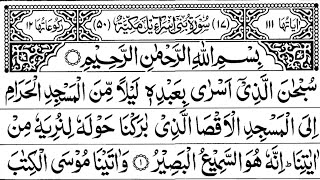 اٰیَاتُهَا ١١١ (١٧) سُوْرَةُ بَنِیْٓ اِسْرَآءِیْلَ مَكِّیَّةٌ (٥٠) رُكُوْعَاتُهَا ١٢
بِسْمِ اللّٰهِ الرَّحْمٰنِ الرَّحِیْمِ
سُبْحٰنَ الَّذِیْۤ اَسْرٰی بِعَبْدِهٖ لَیْلًا مِّنَ الْمَسْجِدِ الْحَرَامِ
اِلَی الْمَسْجِدِ الْاَقْصَا الَّذِیْ بٰرَكْنَا حَوْلَهٗ لِنُرِیَهٗ مِنْ
اٰیٰتِنَا ؕ اِنَّهٗ هُوَ السَّمِیْعُ الْبَصِیْرُ ۝١ وَ اٰتَیْنَا مُوْسَی الْكِتٰبَ